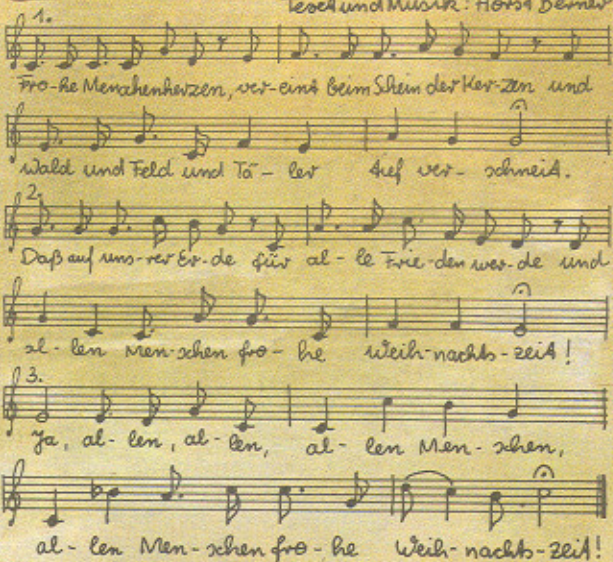 Text und Musik: Horst Berner
1.
Fro-he Menschenherzen, ver-eint beim Schein der Ker-zen und
Wald und Feld und Tä-ler tief ver-schneit.
2.
Daß auf uns-rer Er-de für al-le Frie-den wer-de und
al-len Men-schen fro-he Weih-nachts-zeit!
3.
Ja, al-len, al-len, al-len Men-schen,
al-len Men-schen fro-he Weih-nachts-zeit!